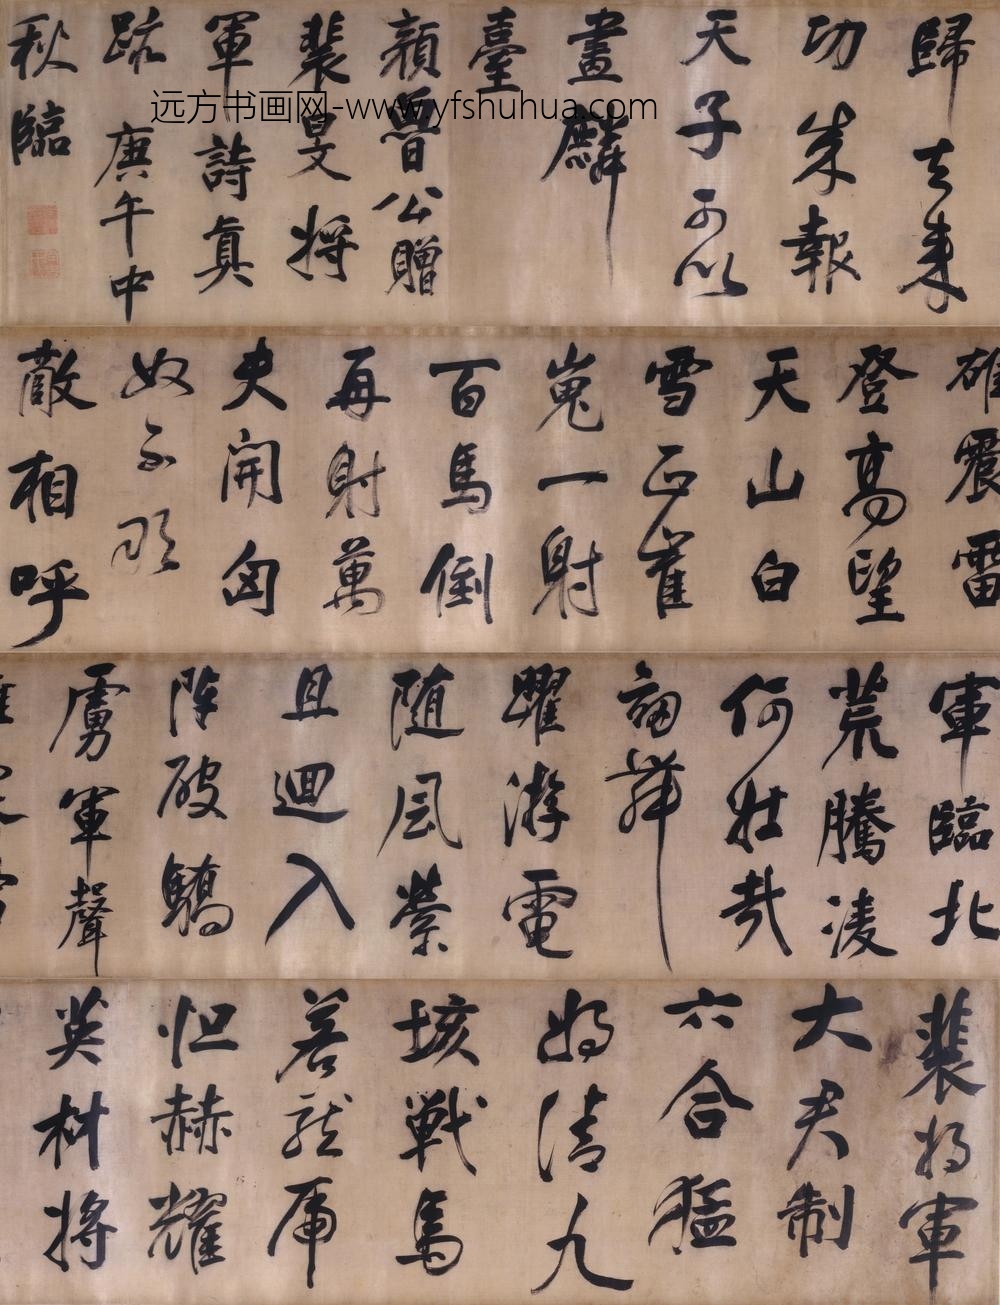 裴将軍
大君制
六合猛
将清九
垓戰馬
若龍虎
怛赫耀
英材将
軍臨北
荒騰凌
何壯哉
劒舞
躍游電
随風縈
且迴入
陣破驕
虜軍聲
雄震雷
登高望
天山白
雪正崔
嵬一射
百馬倒
再射萬
夫開匈
奴不敢
敵相呼
歸去来
功成報
天子可以
畫麟
臺
顏魯公贈
裴旻将
軍詩真
跡庚午中
秋臨
远方书画网-www.yfshuhua.com